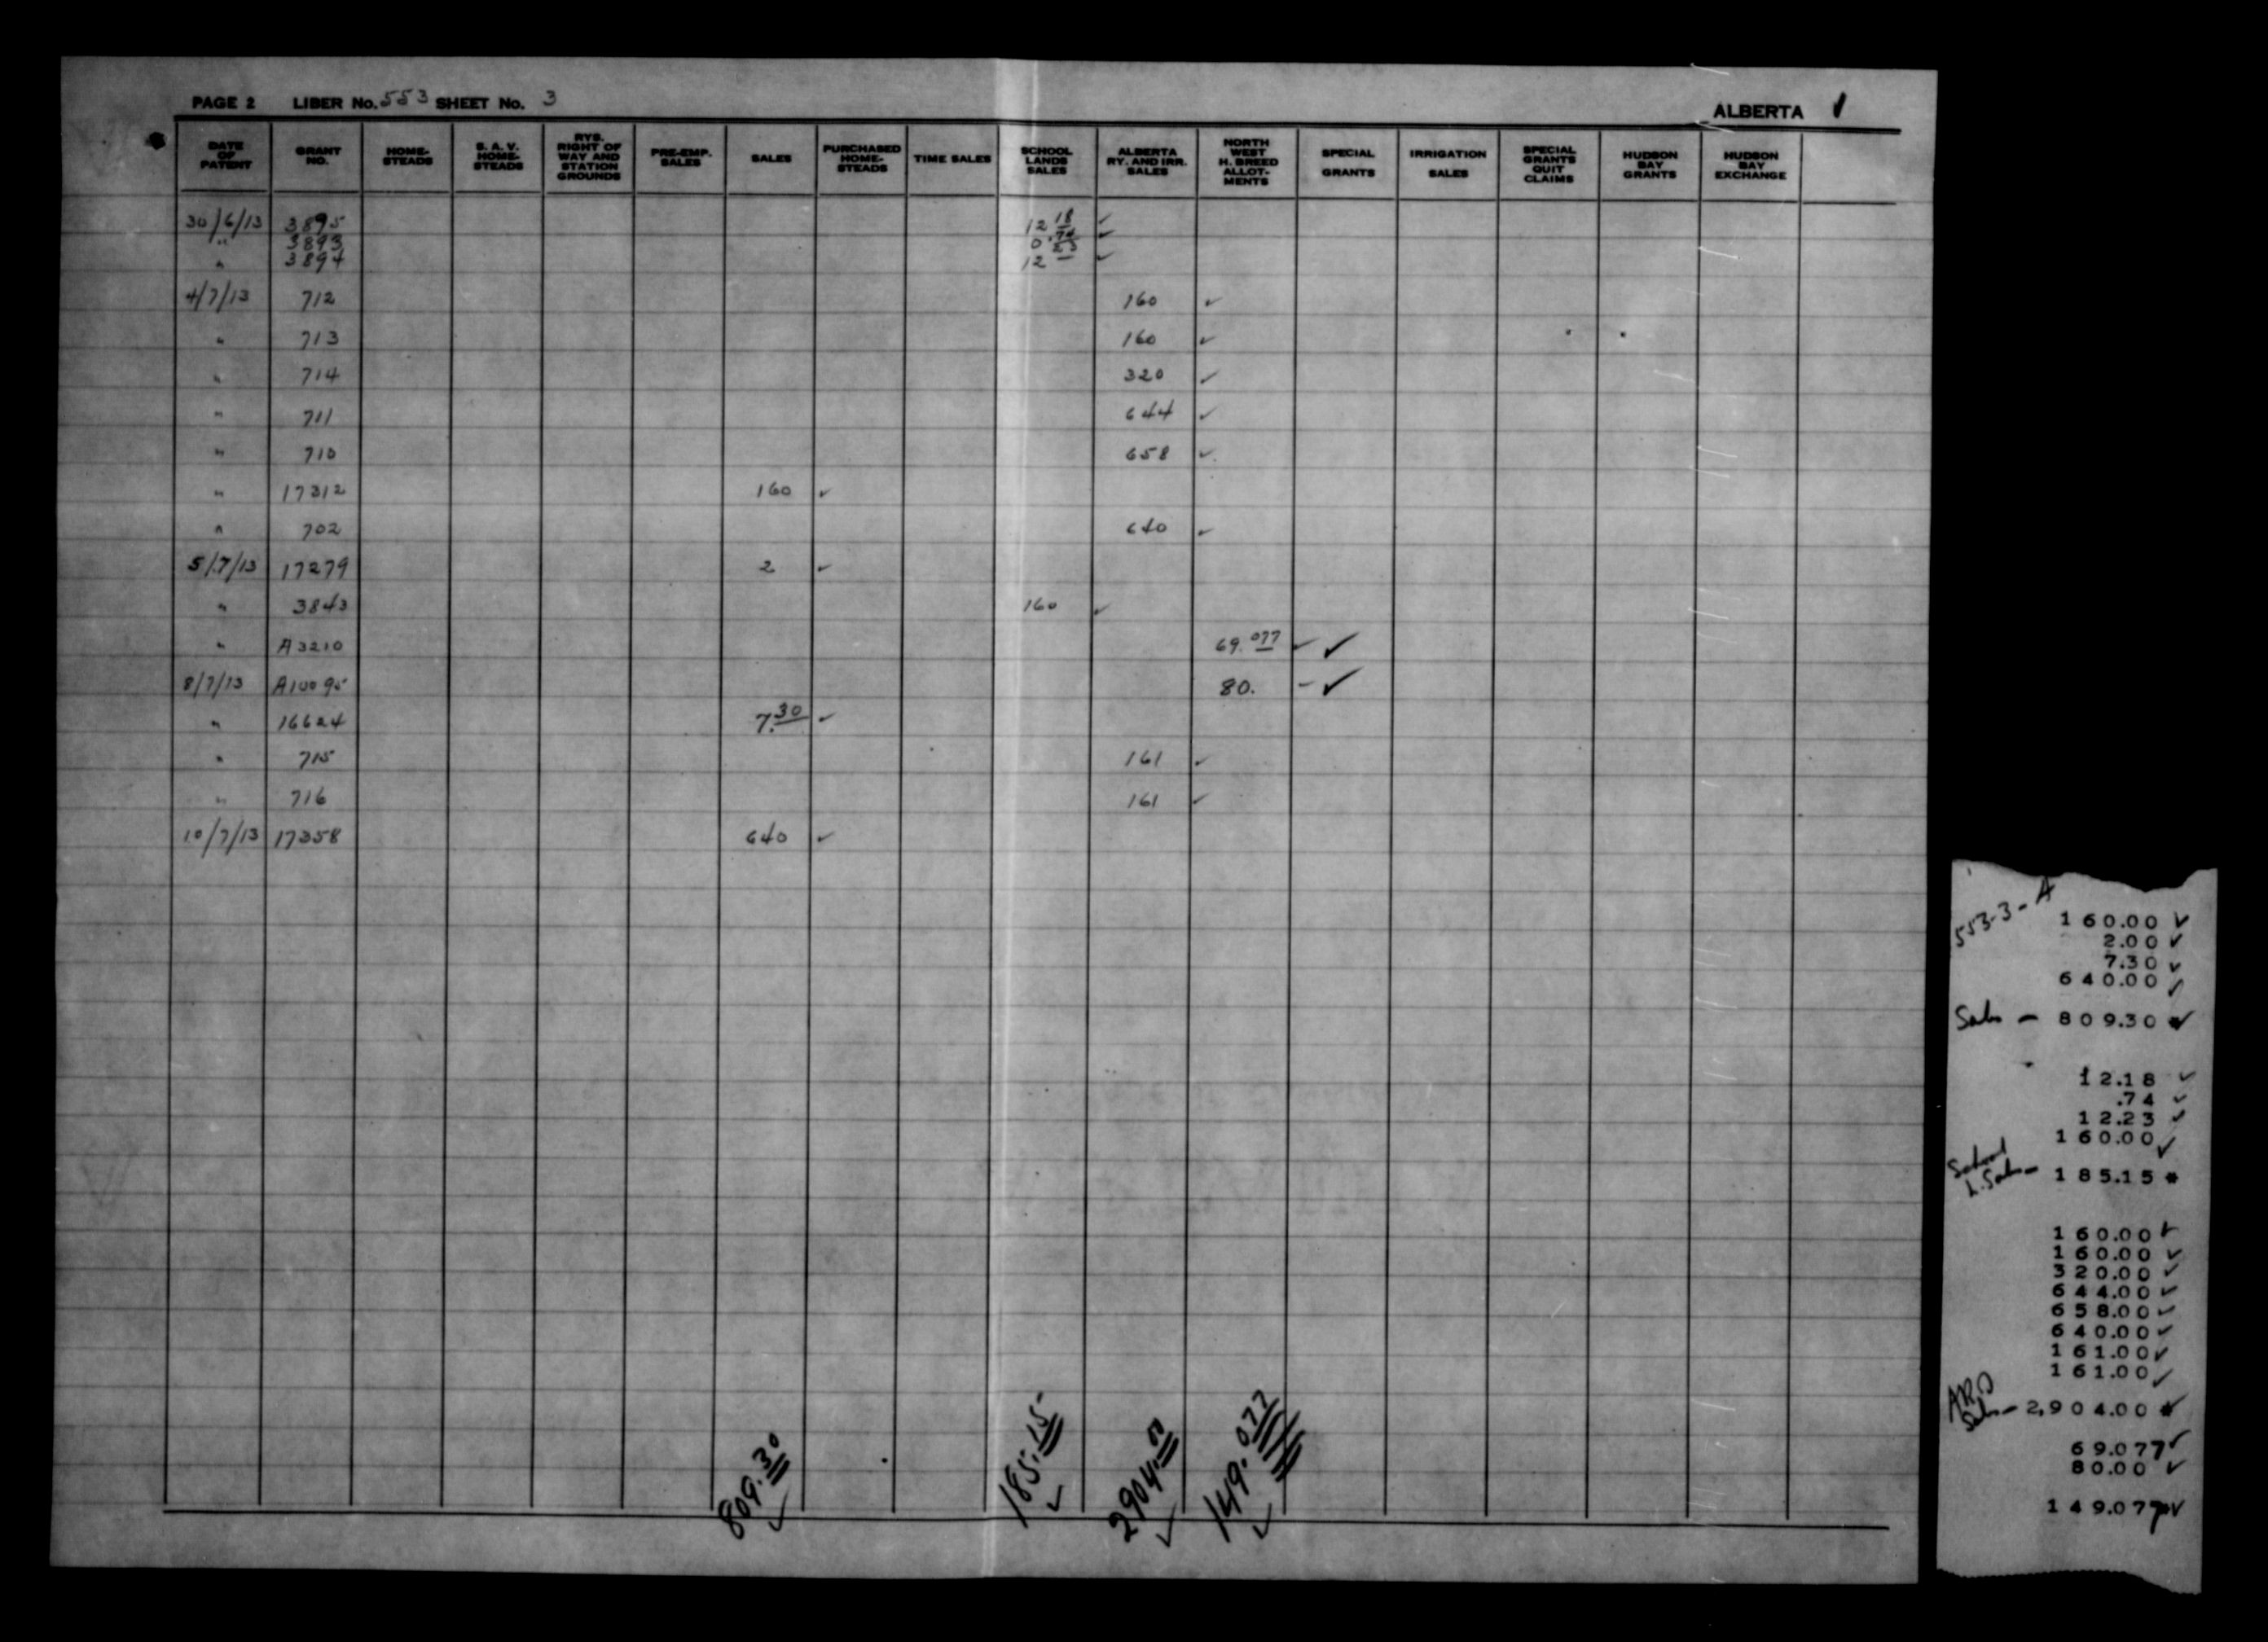 PAGE 2 LIBER No. 553 SHEET No. 3 ALBERTA ✓
DATE OF PATENT | GRANT NO. | HOME-STEADS | S. A. V. HOME-STEADS | RYS. RIGHT OF WAY AND STATION GROUNDS | PRE-EMP. SALES | SALES | PURCHASED HOME-STEADS | TIME SALES | SCHOOL LANDS SALES | ALBERTA RY. AND IRR. SALES | NORTH WEST H. BREED ALLOT-MENTS | SPECIAL GRANTS | IRRIGATION SALES | SPECIAL GRANTS QUIT CLAIMS | HUDSON BAY GRANTS | HUDSON BAY EXCHANGE
30/6/13 3895 12.18 ✓
" 3893 0.74 ✓
" 3894 12.23 ✓
4/7/13 712 160 ✓
" 713 160 ✓
" 714 320 ✓
" 711 644 ✓
" 710 658 ✓
" 17312 160 ✓
" 702 640 ✓
5/7/13 17279 2 ✓
" 3843 160 ✓
" A3210 69.077 ✓ ✓
8/7/13 A10095 80. - ✓
" 16624 7.30 ✓
" 715 161 ✓
" 716 161 ✓
10/7/13 17358 640 ✓
809.30 ✓ 185.15 ✓ 2904.00 ✓ 149.077 ✓
553-3-A
160.00 ✓
2.00 ✓
7.30 ✓
640.00 ✓
Sales - 809.30 * ✓
12.18 ✓
.74 ✓
12.23 ✓
160.00 ✓
School
L. Sales - 185.15 *
160.00 ✓
160.00 ✓
320.00 ✓
644.00 ✓
658.00 ✓
640.00 ✓
161.00 ✓
161.00 ✓
Sales - 2,904.00 * ✓
69.077 ✓
80.00 ✓
149.077 * ✓